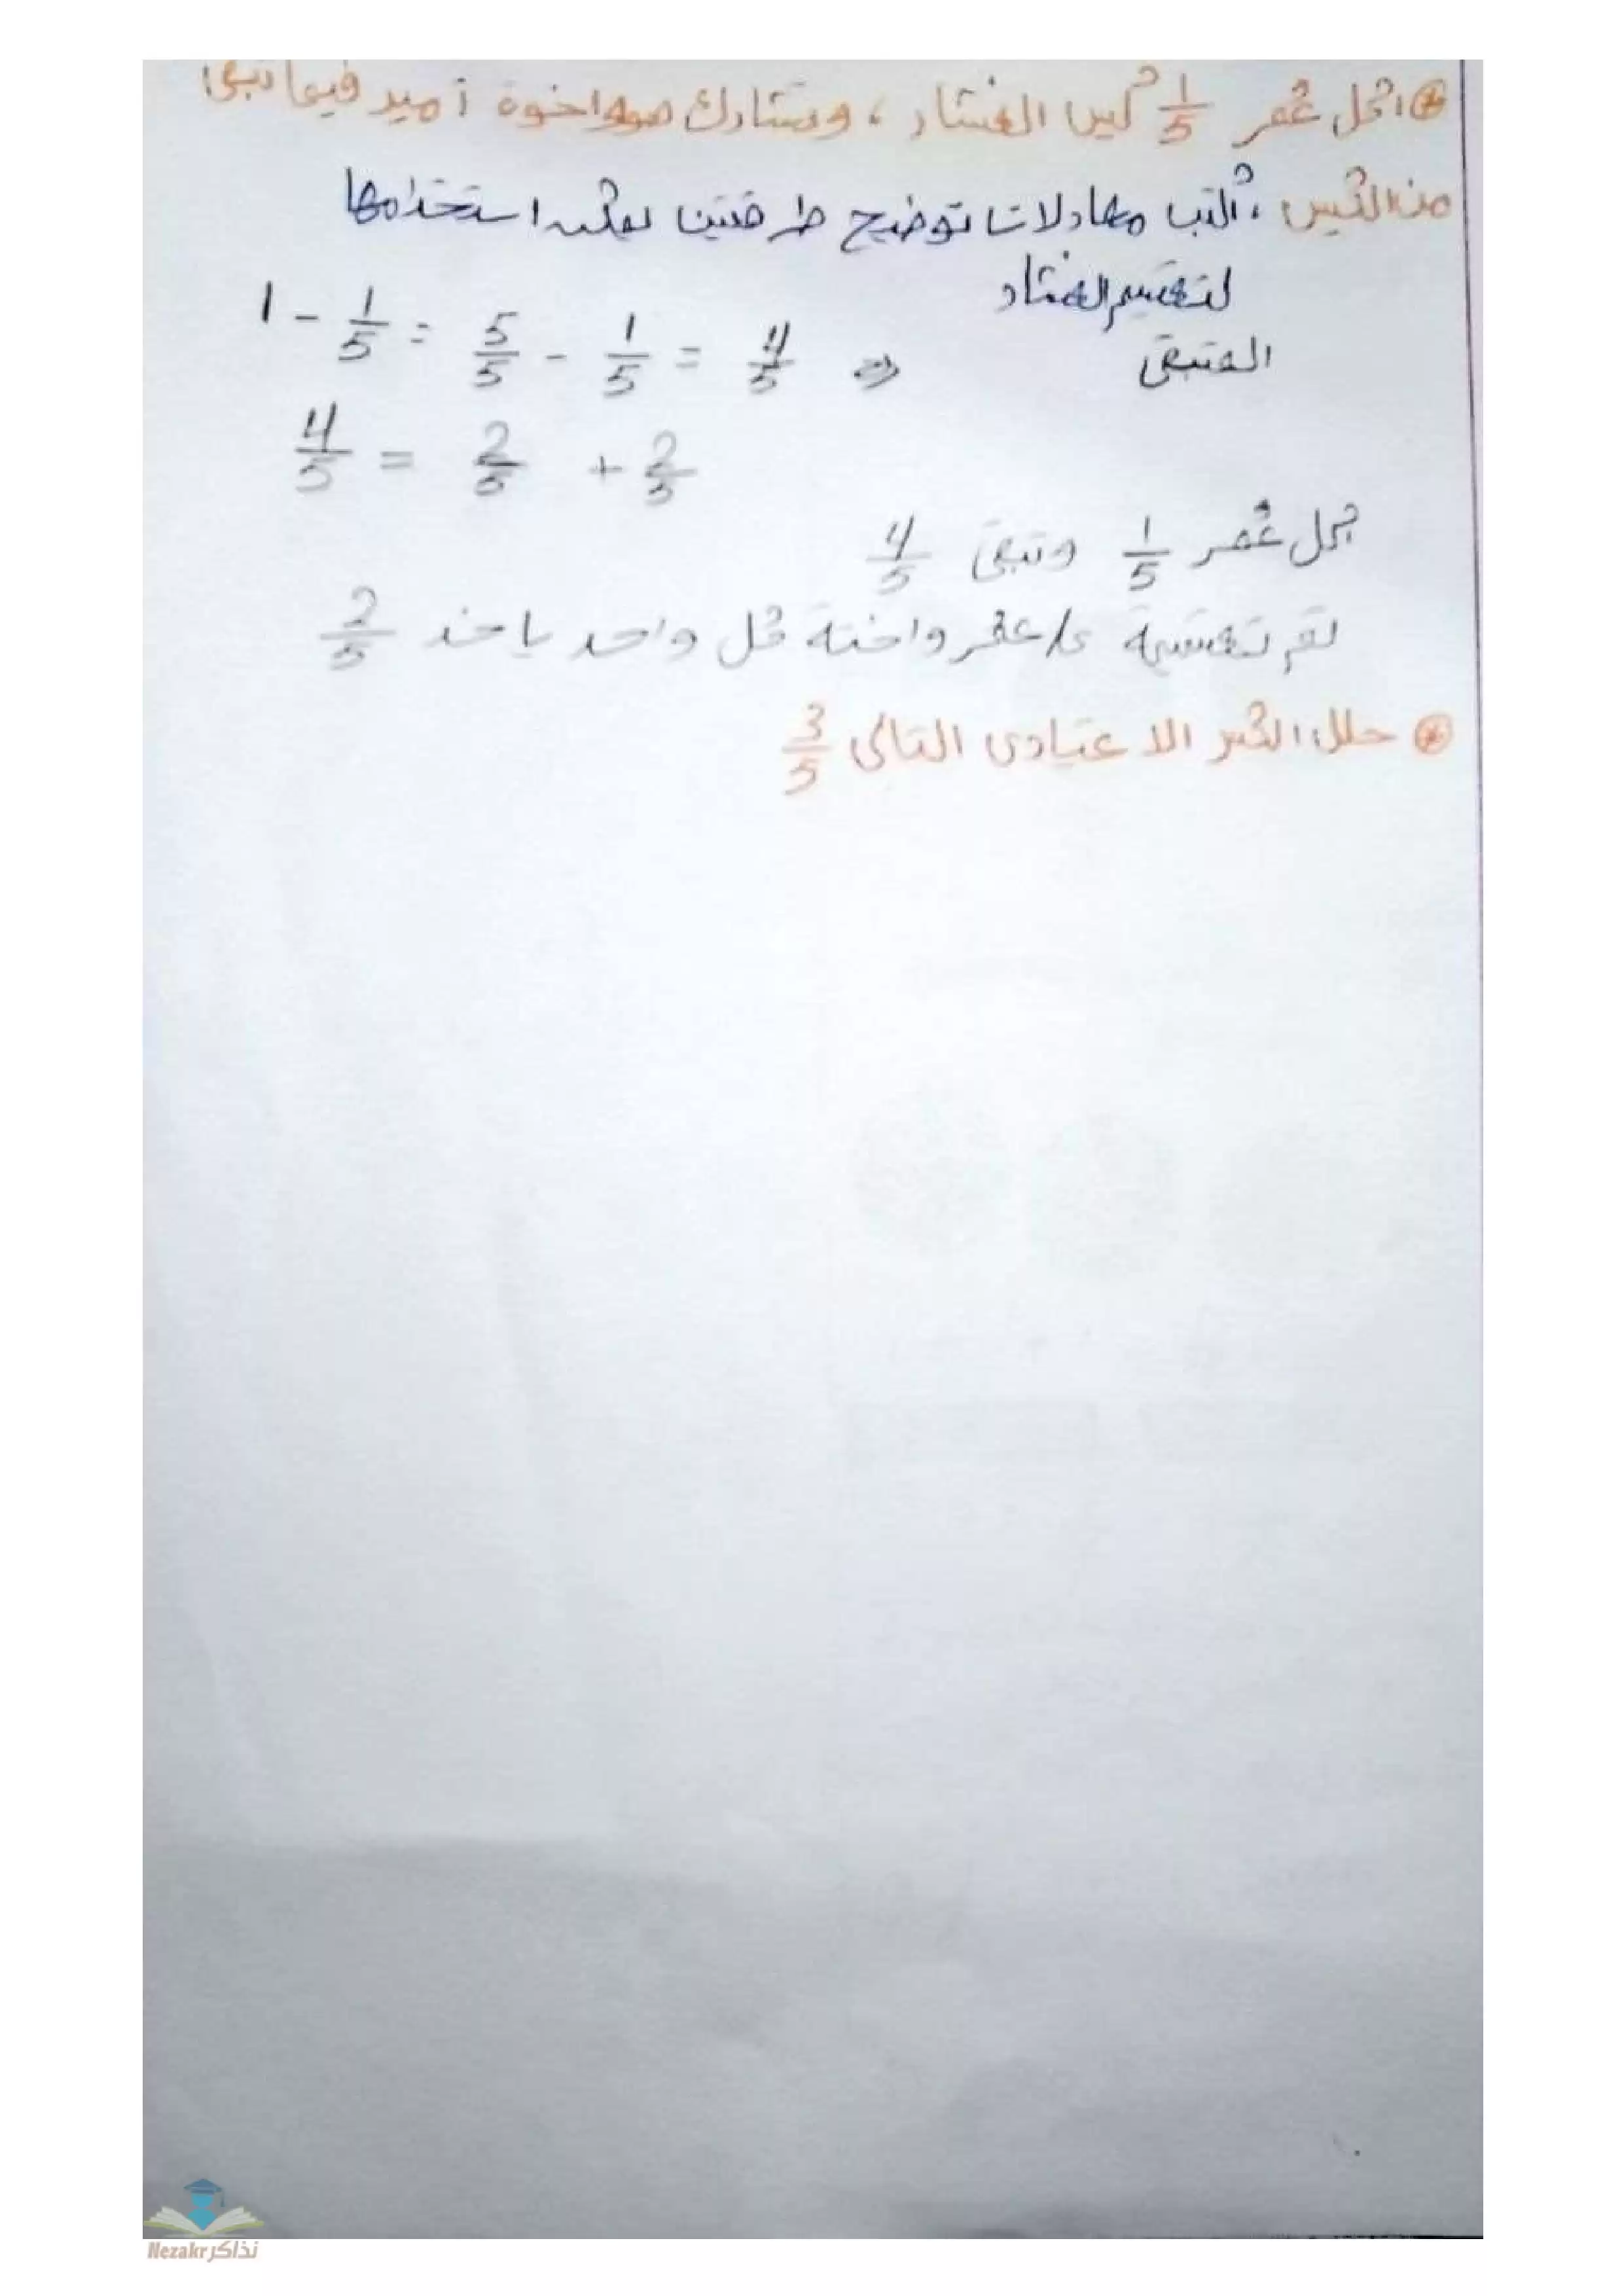 اكل عمر 1/5 كيس الفشار ، وتشارك هو واخوة أميد فيما تبقى
من الكيس ، اكتب معادلات توضيح طرقتين يمكن استخدامها
لتقسيم الفشار
المتبقى
1 - 1/5 = 5/5 - 1/5 = 4/5 ⇐
4/5 = 2/5 + 2/5
اكل عمر 1/5 وتبقى 4/5
تقسيمة عمر واخته كل واحد ياخد 2/5
حلل الكسر الاعتيادى التالى 3/5
Nezakr نذاكر